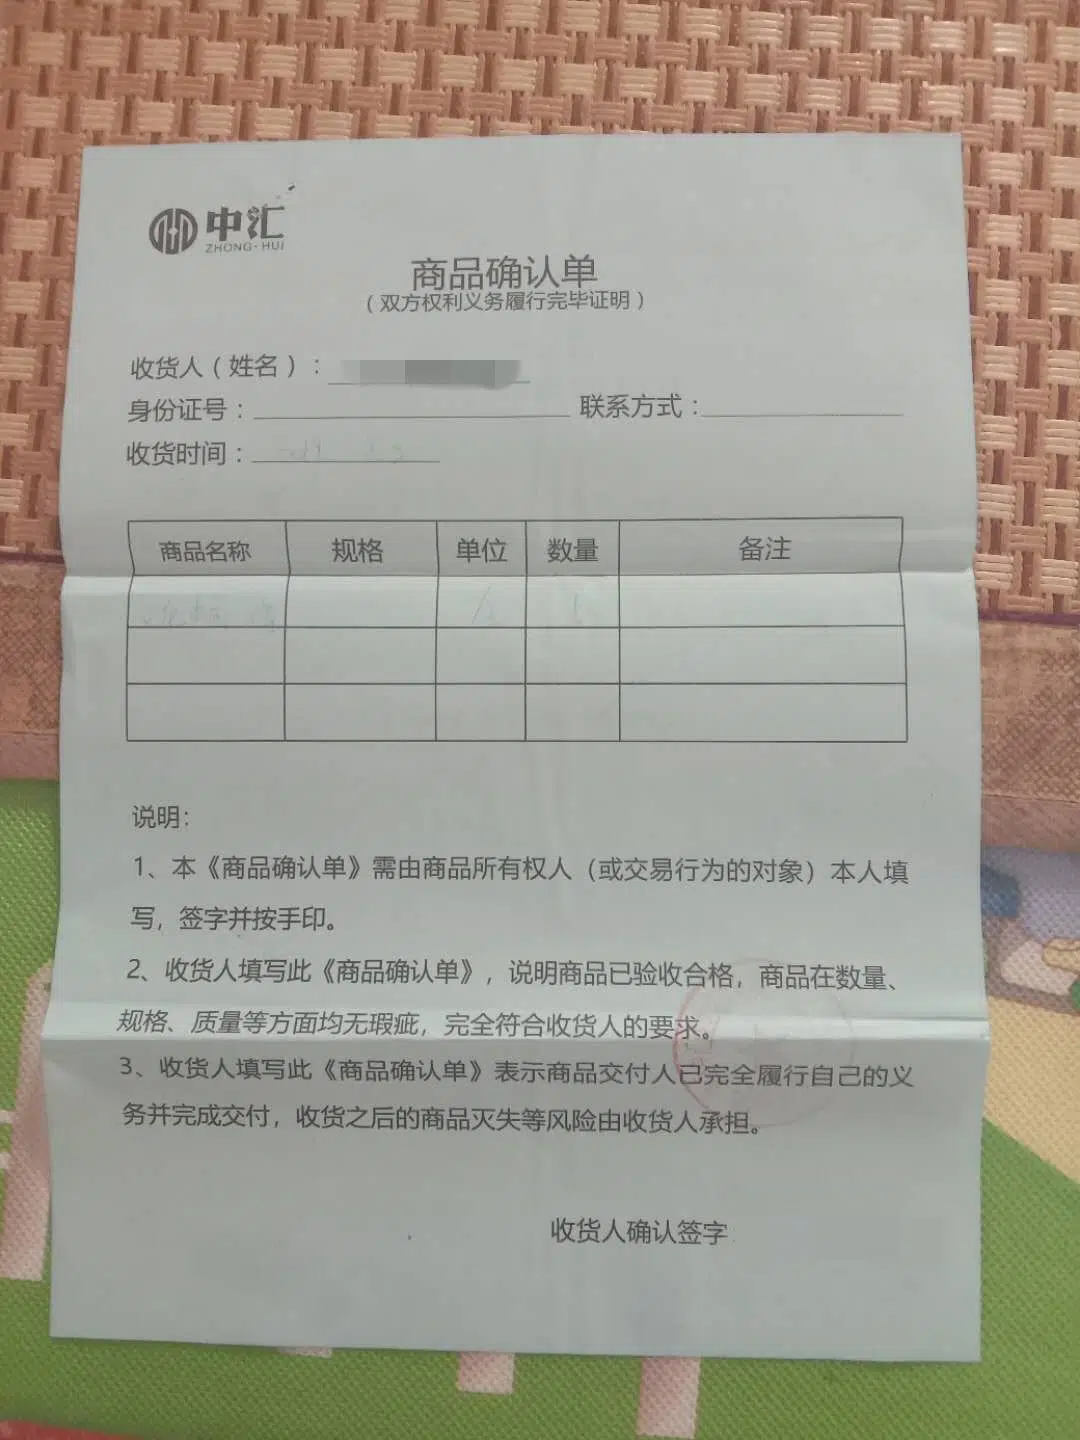 中汇
ZHONG-HUI
商品确认单
（双方权利义务履行完毕证明）
收货人（姓名）：
身份证号： 联系方式：
收货时间：
商品名称 规格 单位 数量 备注
说明：
1、本《商品确认单》需由商品所有权人（或交易行为的对象）本人填
写，签字并按手印。
2、收货人填写此《商品确认单》，说明商品已验收合格，商品在数量、
规格、质量等方面均无瑕疵，完全符合收货人的要求。
3、收货人填写此《商品确认单》表示商品交付人已完全履行自己的义
务并完成交付，收货之后的商品灭失等风险由收货人承担。
收货人确认签字